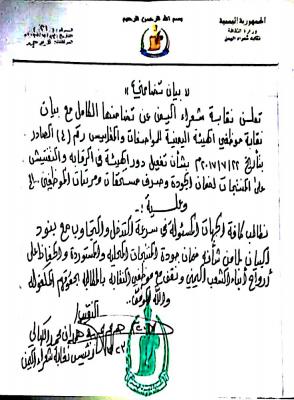 بسم الله الرحمن الرحيم
الجمهورية اليمنية
وزارة الثقافة
نقابة شعراء اليمن
« بيان تضامني »
تعلن نقابة شعراء اليمن عن تضامنها الكامل مع بيان
نقابة موظفي الهيئة اليمنية للمواصفات والمقاييس رقم (٤) الصادر
بتاريخ ٢٠١٧/٧/٢٢م بشأن تفعيل دور الهيئة في الرقابة والتفتيش
على المنتجات لضمان الجودة وصرف مستحقات ومرتبات الموظفين
وعليه:
نطالب كافة الجهات المسئولة في سرعة التدخل والتجاوب مع بنود
البيان لما من شأنه ضمان جودة المنتجات المحلية والمستوردة والحفاظ على
أرواح أبناء الشعب اليمني ونقف مع موظفي النقابة بالمطالبة بحقوقهم المكفولة
والله الموفق
النقيب/
رئيس نقابة شعراء اليمن